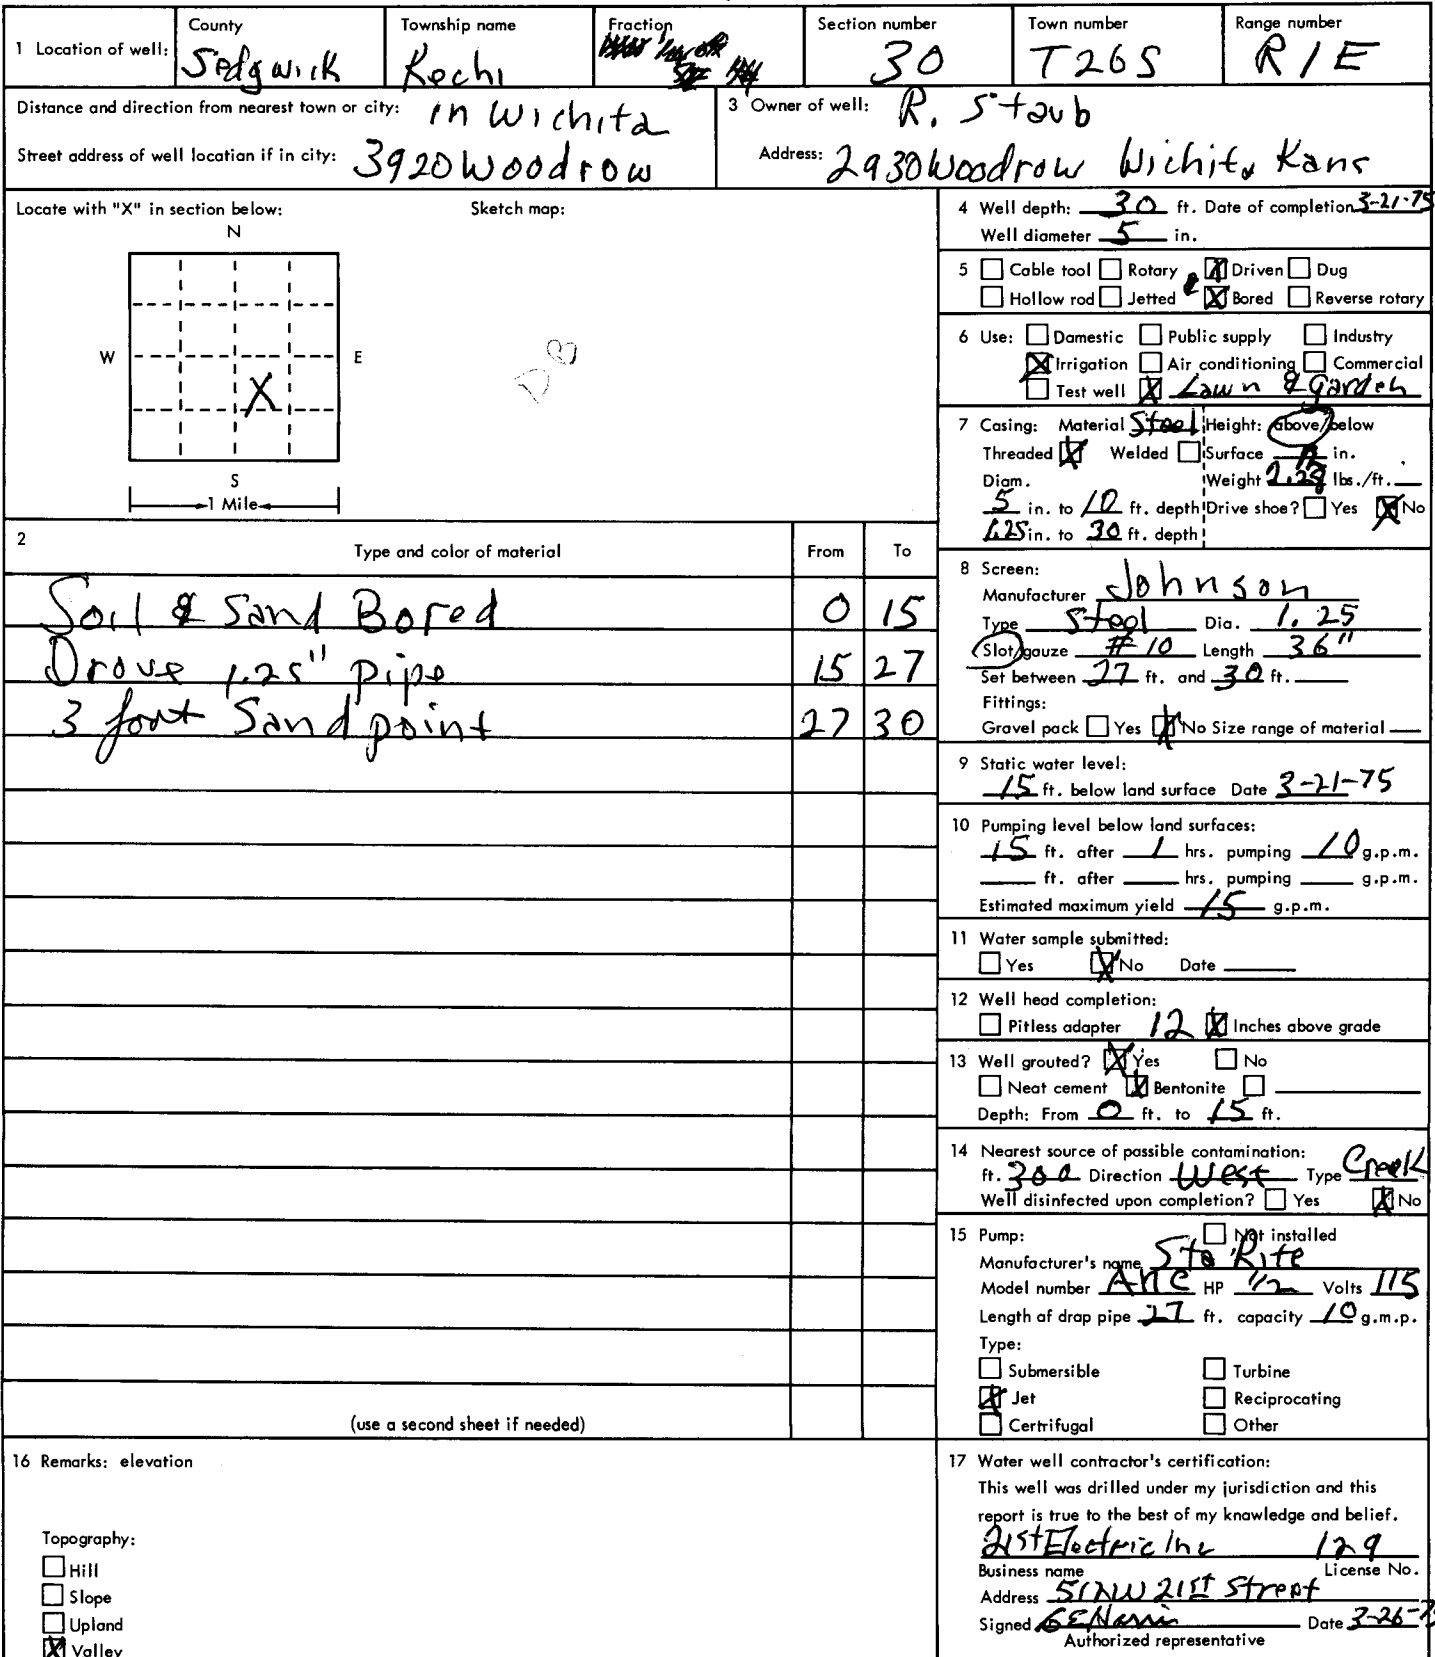 1 Location of well: County Sedgwick Township name Kechi Fraction Section number 30 Town number T26S Range number R1E
Distance and direction from nearest town or city: in Wichita
Street address of well location if in city: 3920 Woodrow
3 Owner of well: R. Staub
Address: 2930 Woodrow Wichita Kans
Locate with "X" in section below: Sketch map:
N
W E
X
S
1 Mile
2 Type and color of material From To
Soil & Sand Bored 0 15
Drove 1.25" pipe 15 27
3 foot Sand point 27 30
(use a second sheet if needed)
4 Well depth: 30 ft. Date of completion 3-21-75
Well diameter 5 in.
5 Cable tool Rotary X Driven Dug
Hollow rod Jetted & X Bored Reverse rotary
6 Use: Damestic Public supply Industry
X Irrigation Air conditioning Commercial
Test well X Lawn & Garden
7 Casing: Material Steel Height: above/below
Threaded X Welded Surface 12 in.
Diam. Weight lbs./ft.
5 in. to 10 ft. depth Drive shoe? Yes X No
1.25 in. to 30 ft. depth
8 Screen:
Manufacturer Johnson
Type Steel Dia. 1.25
Slot/gauze #10 Length 36"
Set between 27 ft. and 30 ft.
Fittings:
Gravel pack Yes X No Size range of material
9 Static water level:
15 ft. below land surface Date 3-21-75
10 Pumping level below land surfaces:
15 ft. after 1 hrs. pumping 10 g.p.m.
ft. after hrs. pumping g.p.m.
Estimated maximum yield 15 g.p.m.
11 Water sample submitted:
Yes X No Date
12 Well head completion:
Pitless adapter 12 X Inches above grade
13 Well grouted? X Yes No
Neat cement X Bentonite
Depth: From 0 ft. to 15 ft.
14 Nearest source of possible contamination:
ft. 300 Direction West Type Creek
Well disinfected upon completion? Yes X No
15 Pump: Not installed
Manufacturer's name Sta Rite
Model number HP 1/2 Volts 115
Length of drap pipe 27 ft. capacity 10 g.m.p.
Type:
Submersible Turbine
X Jet Reciprocating
Certrifugal Other
16 Remarks: elevation
Topography:
Hill
Slope
Upland
X Valley
17 Water well contractor's certification:
This well was drilled under my jurisdiction and this
report is true to the best of my knowledge and belief.
21st Electric Inc 129
Business name License No.
Address 512 W 21st Street
Signed GE Harris Date 3-26-75
Authorized representative